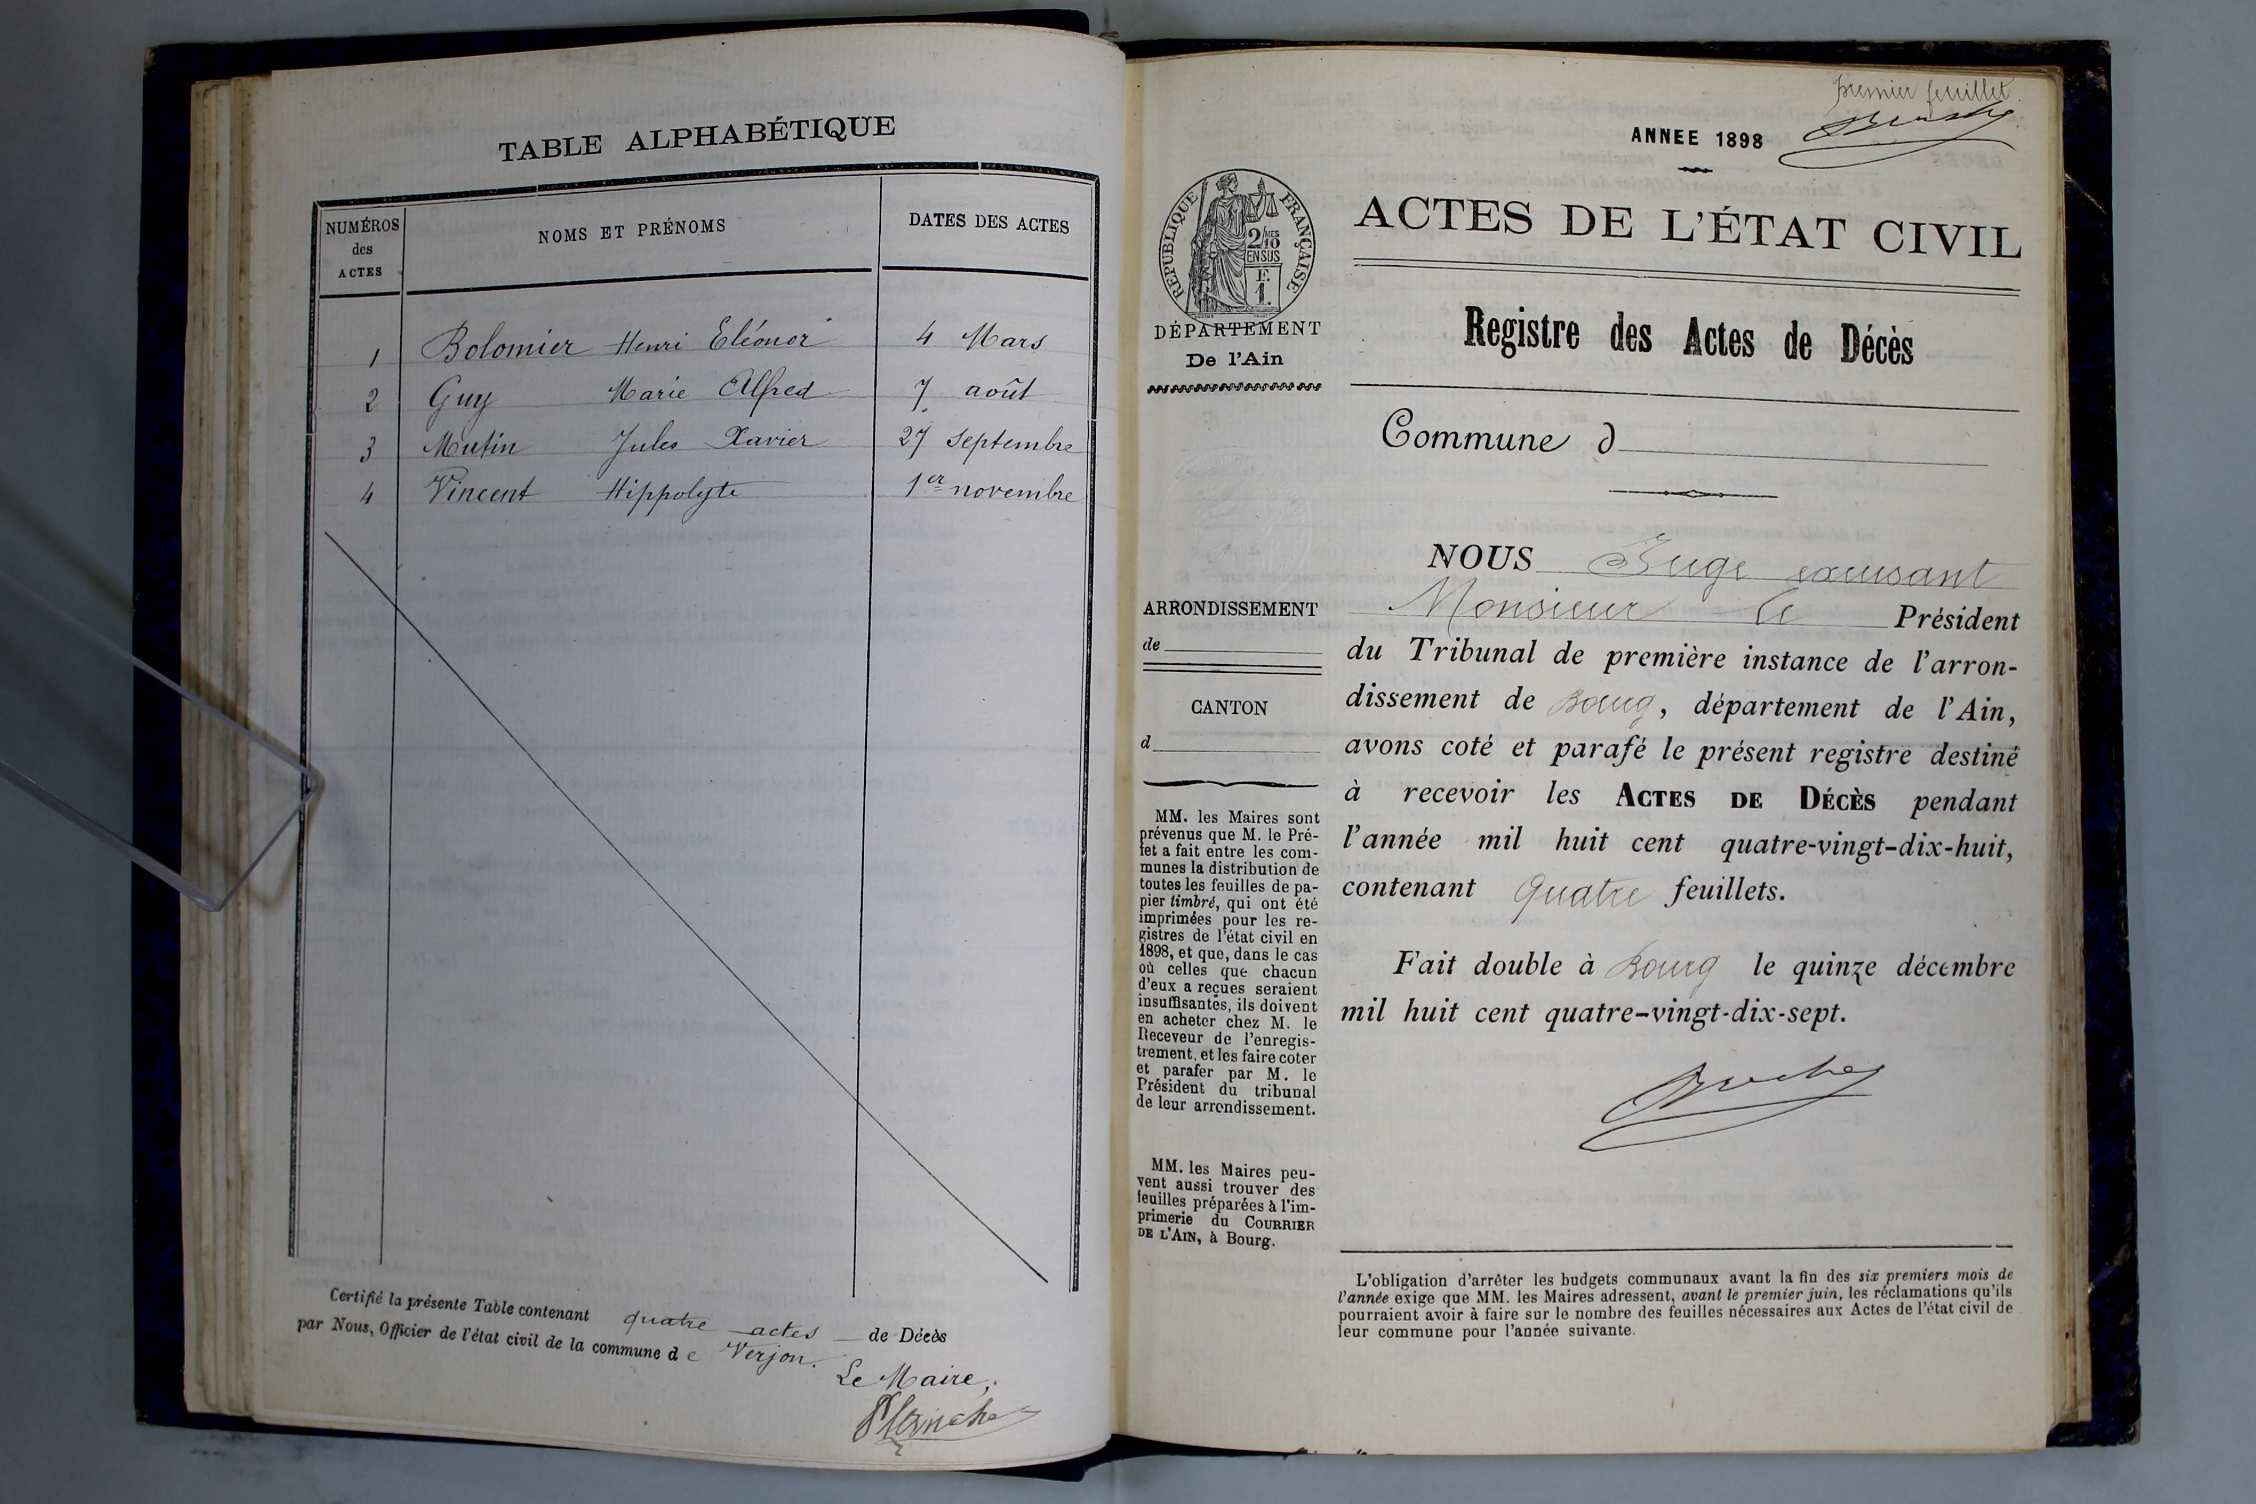 TABLE ALPHABÉTIQUE
NUMÉROS
des
ACTES
NOMS ET PRÉNOMS
DATES DES ACTES
1 Bolomier Henri Eléonor 4 Mars
2 Guy Marie Alfred 7 août
3 Mutin Jules Xavier 27 septembre
4 Vincent Hippolyte 1er novembre
Certifié la présente Table contenant quatre actes de Décès
par Nous, Officier de l'état civil de la commune de Verjon.
Le Maire,
premier feuillet.
ANNEE 1898
RÉPUBLIQUE FRANÇAISE
2/10MES
EN SUS
F.
1.
DÉPARTEMENT
De l'Ain
ACTES DE L'ÉTAT CIVIL
Registre des Actes de Décès
Commune d
ARRONDISSEMENT
de
CANTON
d
MM. les Maires sont
prévenus que M. le Pré-
fet a fait entre les com-
munes la distribution de
toutes les feuilles de pa-
pier timbré, qui ont été
imprimées pour les re-
gistres de l'état civil en
1898, et que, dans le cas
où celles que chacun
d'eux a reçues seraient
insuffisantes, ils doivent
en acheter chez M. le
Receveur de l'enregis-
trement, et les faire coter
et parafer par M. le
Président du tribunal
de leur arrondissement.
MM. les Maires peu-
vent aussi trouver des
feuilles préparées à l'im-
primerie du COURRIER
DE L'AIN, à Bourg.
NOUS Juge excusant
Monsieur le Président
du Tribunal de première instance de l'arron-
dissement de Bourg, département de l'Ain,
avons coté et parafé le présent registre destiné
à recevoir les ACTES DE DÉCÈS pendant
l'année mil huit cent quatre-vingt-dix-huit,
contenant Quatre feuillets.
Fait double à Bourg le quinze décembre
mil huit cent quatre-vingt-dix-sept.
L'obligation d'arrêter les budgets communaux avant la fin des six premiers mois de
l'année exige que MM. les Maires adressent, avant le premier juin, les réclamations qu'ils
pourraient avoir à faire sur le nombre des feuilles nécessaires aux Actes de l'état civil de
leur commune pour l'année suivante.